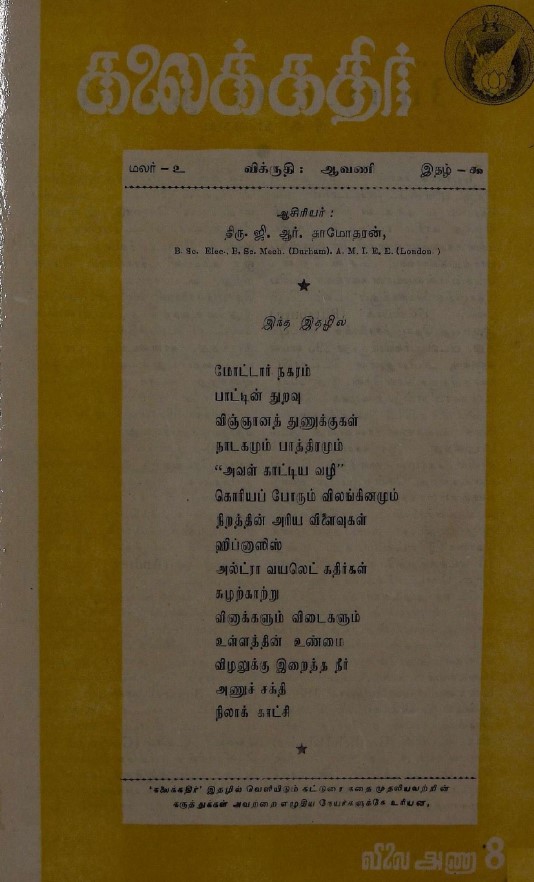 கலைக்கதிர்
மலர் - உ விக்ருதி : ஆவணி இதழ் - ௯
ஆசிரியர் :
திரு. ஜி. ஆர். தாமோதரன்,
B. Sc. Elec., B. Sc. Mach. (Durham), A. M. I. E. E. (London.)
இந்த இதழில்
மோட்டார் நகரம்
பாட்டின் துறவு
விஞ்ஞானத் துணுக்குகள்
நாடகமும் பாத்திரமும்
“அவள் காட்டிய வழி”
கொரியப் போரும் விலங்கினமும்
நிறத்தின் அரிய விளைவுகள்
ஹிப்னாஸிஸ்
அல்ட்ரா வயலெட் கதிர்கள்
சுழற்காற்று
வினாக்களும் விடைகளும்
உள்ளத்தின் உண்மை
விழலுக்கு இறைத்த நீர்
அணுச் சக்தி
நிலாக் காட்சி
'கலைக்கதிர்' இதழில் வெளியிடும் கட்டுரை கதை முதலியவற்றின்
கருத்துக்கள் அவற்றை எழுதிய நேயர்களுக்கே உரியன.
விலை அணா 8